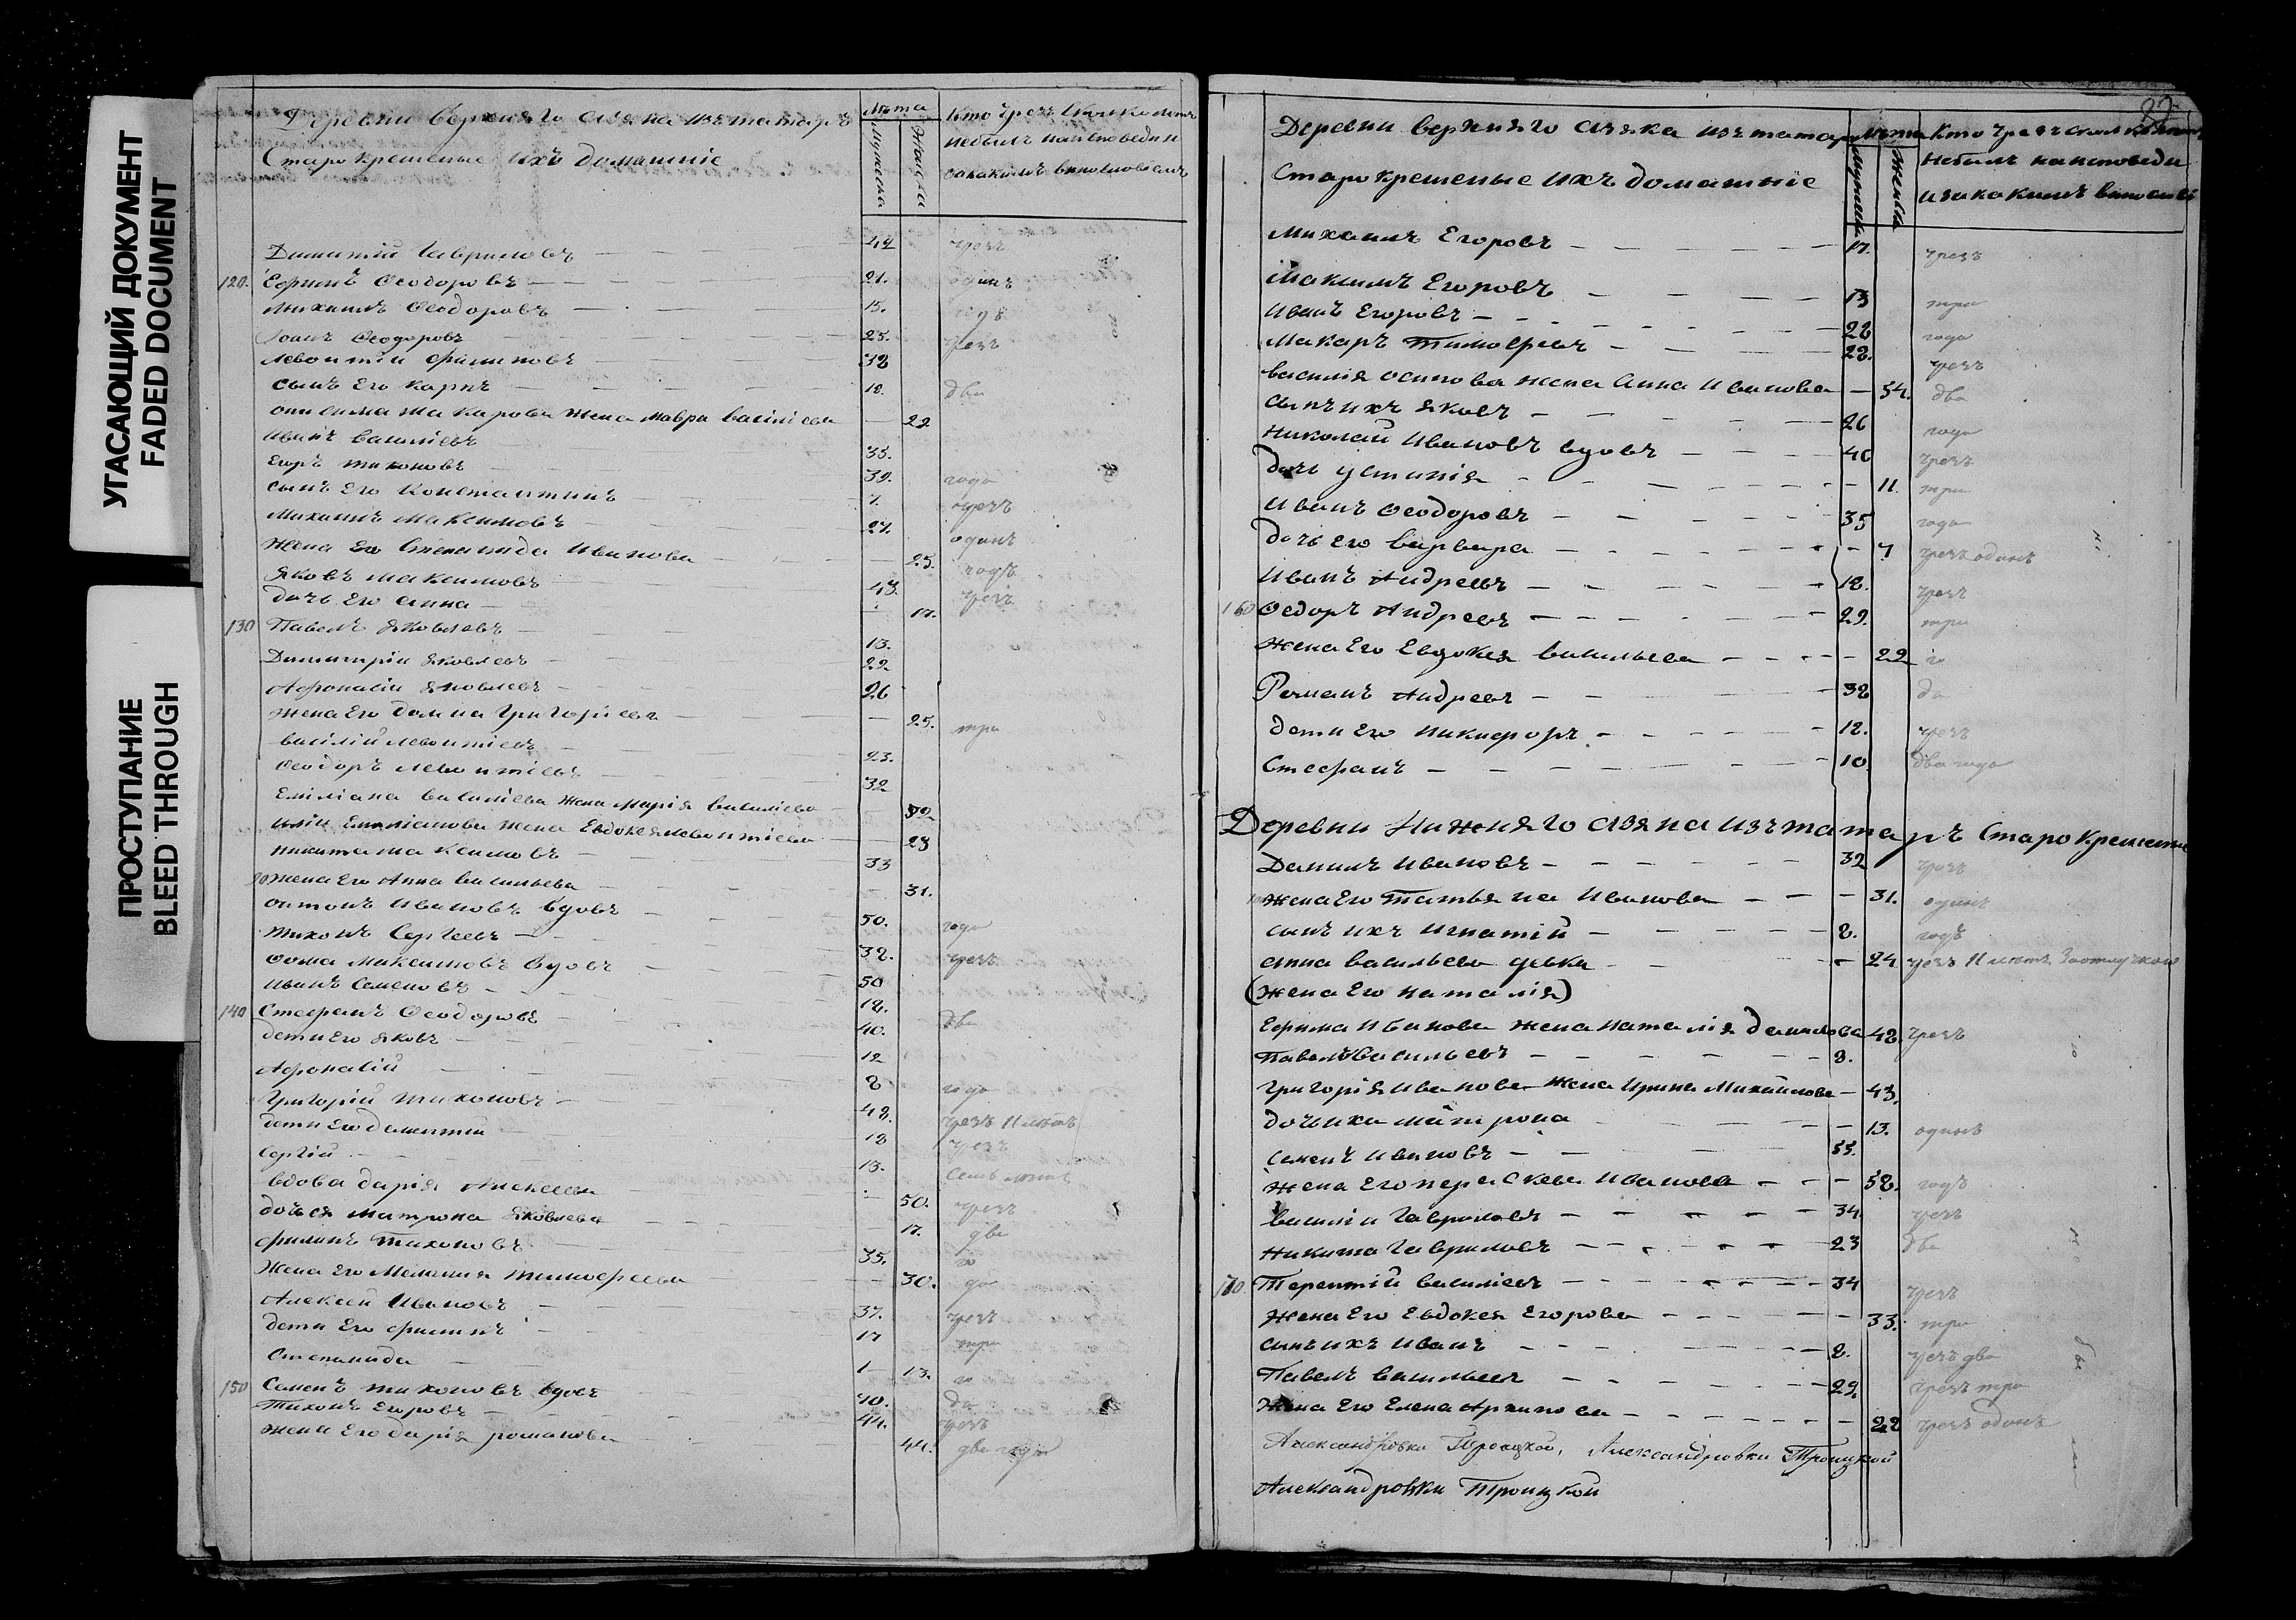 УГАСАЮЩИЙ ДОКУМЕНТ
FADED DOCUMENT
ПРОСТУПАНИЕ
BLEED THROUGH
Деревни верхняго азяка изъ татаръ
Старокрешеные ихъ домашніе
Лѣта
Мужеска
Женска
Кто чрезъ сколко лѣтъ
небылъ наисповеди
Димитій Гавриловъ 42 чрезъ
120. Ефримъ Ѳеодоровъ 21. одинъ
Михаилъ Ѳеодоровъ 15. годъ
Іоанъ Ѳеодоровъ 25. чрезъ
Левонтій Филиповъ 38
сынъ Его Карпъ 18. два
Макарова жена Мавра василіева 22
Иванъ василіевъ 35.
Егоръ тихоновъ 39. года
сынъ Его Константинъ 7. чрезъ
Михаилъ Максимовъ 27. одинъ
Жена Его Степанида Иванова 25. годъ
Яковъ Максимовъ 43. чрезъ
дочь Его анна 17.
130 Павелъ Яковлевъ 13.
Димитрій Яковлевъ 22
Афонасій Яковлевъ 26
жена Его Домна Григоріева 25. три
василій левонтіевъ 23.
Ѳеодоръ левонтіевъ 32
Еміліана василіева жена Марія василіева 50
иліи Емиліанова жена Евдокея левонтіева 29
никита Максимовъ 33
жена Его Анна васильева 31.
антонъ Ивановъ вдовъ 50. года
тихонъ Сергеевъ 38. чрезъ
Ѳома Максимовъ вдовъ 50
Иванъ Семеновъ 18.
140 Стефанъ Ѳеодоровъ 40. два
дети Его Яковъ 12
Афонасій 8 года
Григорій тихоновъ 48. чрезъ 11 летъ
дети Его дементій 18 чрезъ
Сергій 13. семь летъ
вдова дарія Алексеева 50. чрезъ
дочь ея матрона Яковлева 17. два
филипъ тихоновъ 35. го
Жена Его Меланія тимофеева 30. да
Алексей Ивановъ 37. чрезъ
дети Его филипъ 17 три
Степанида 13. го
150 Семенъ тихоновъ вдовъ 40. да
Тихонъ Егоровъ 44. чрезъ
жена Его дарія романова 44. два года
Деревни верхняго азяка изъ татаръ
Старокрешеные ихъ домашніе
Лѣта
Мужеска
Женска
небылъ наисповеди
Михаилъ Егоровъ 17. чрезъ
Максимъ Егоровъ 13 три
Иванъ Егоровъ 28 года
Макаръ тимофеевъ 28. чрезъ
василія осипова жена Анна Иванова 54. два
сынъ ихъ Яковъ 26 года
Николай Ивановъ вдовъ 40 чрезъ
дочь устинія 11. три
Иванъ Ѳеодоровъ 35 года
дочь Его варвара 7 чрезъ одинъ
Иванъ Андреевъ 18. чрезъ
160 Ѳедоръ Андреевъ 29. три
Жена Его Евдокея васильева 22 го
Романъ Андреевъ 38 да
дети Его никифоръ 12. чрезъ
Стефанъ 10. два года
Деревни Нижняго азяка изъ татаръ Старокрешеные
Данилъ Ивановъ 32 чрезъ
жена Его татьяна Иванова 31. одинъ
сынъ ихъ Игнатій 8. годъ
анна васильева девка 24 чрезъ 11 летъ За отлучкою
(жена Его наталія)
Ефима Иванова жена наталія данилова 48. чрезъ
Павелъ васильевъ 8.
Григорія иванова жена Ирина Михаилова 43.
дочь ихъ матрона 13. одинъ
Семенъ Ивановъ 55.
Жена Его параскева Иванова 58. годъ
василіи Гавриловъ 34. чрезъ
никита Гавриловъ 23 два
170. Терентій василіевъ 34 чрезъ
жена Его Евдокея Егорова 33. три
сынъ ихъ Иванъ 8. чрезъ два
Павелъ васильевъ 29. чрезъ три
Жена Его Елена Архипова 22 чрезъ одинъ
Александровки Троицкой, Александровки Троицкой
Александровки Троицкой